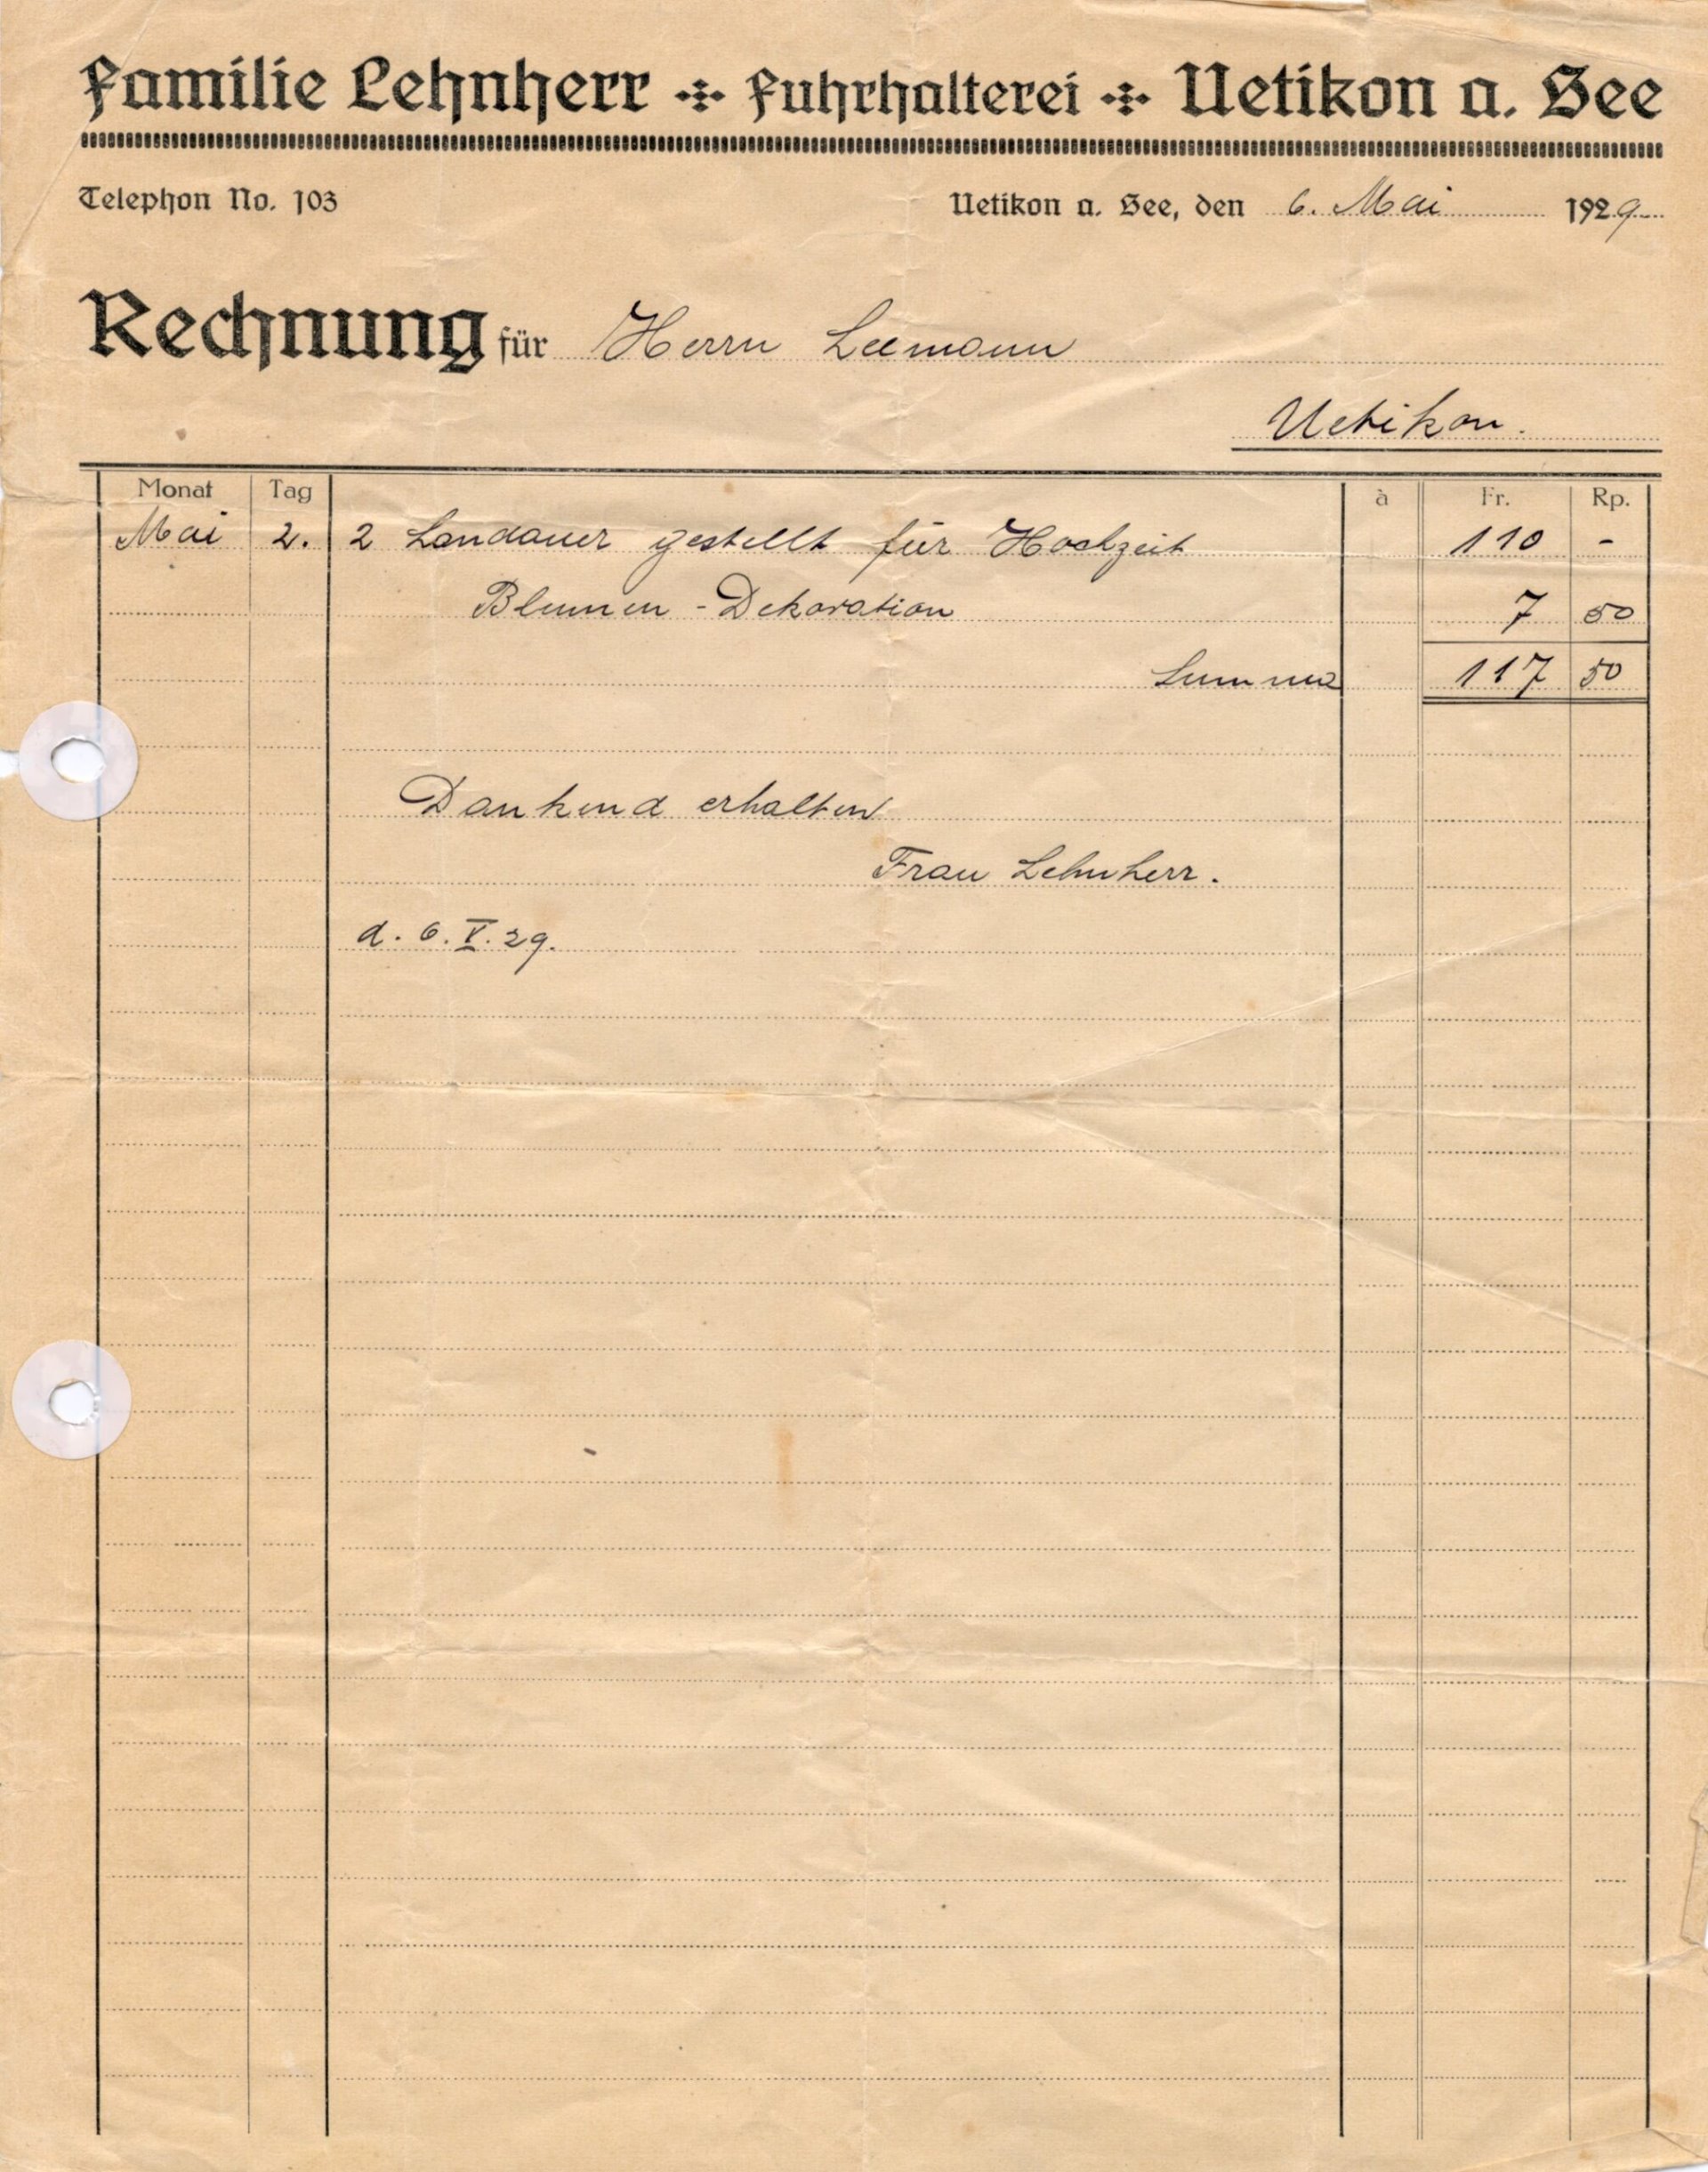 Familie Lehnherr Fuhrhalterei Uetikon a. See
Telephon No. 103 Uetikon a. See, den 6. Mai 1929
Rechnung für Herrn Leemann
Uetikon.
Monat Tag à Fr. Rp.
Mai 2. 2 Landauer gestellt für Hochzeit 110 -
Blumen - Dekoration 7 50
Summa 117 50
Dankend erhalten
Frau Lehnherr.
d. 6. V. 29.